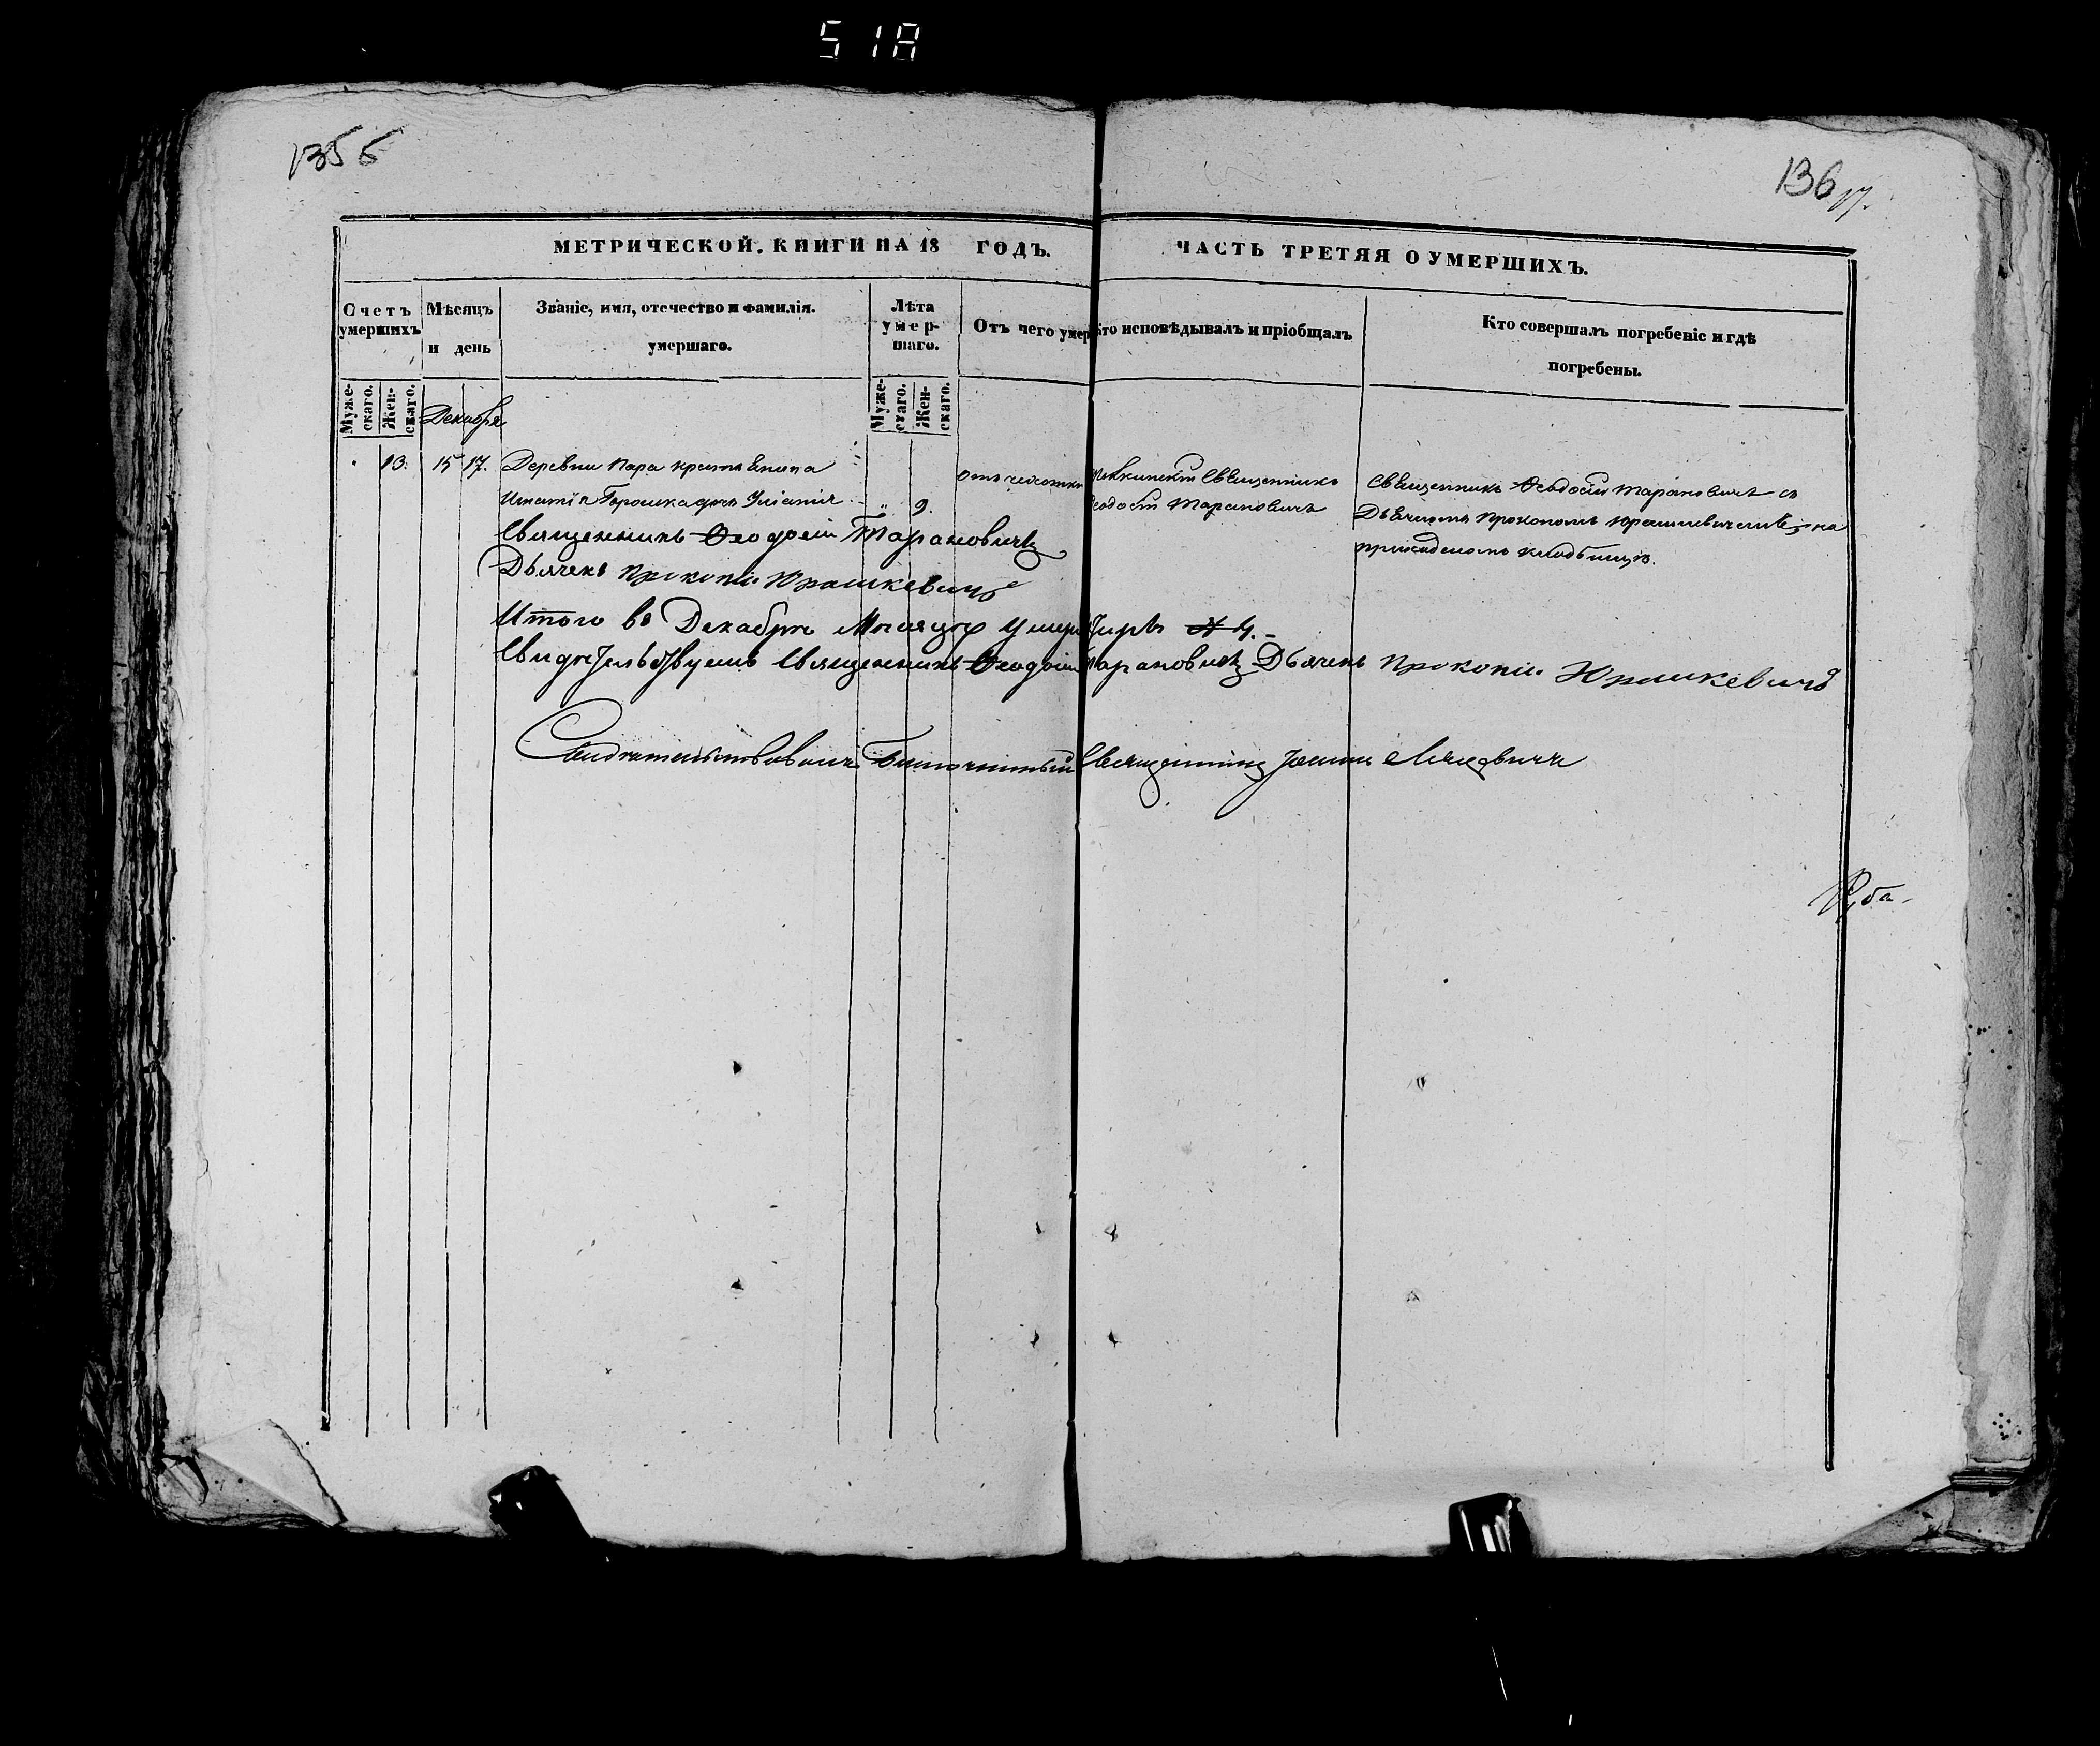 518
135б
136
17.
МЕТРИЧЕСКОЙ. КНИГИ НА 18 ГОДЪ.
ЧАСТЬ ТРЕТЯЯ О УМЕРШИХЪ.
Счетъ умершихъ
Мѣсяцъ и день
Званіе, имя, отечество и фамилія.
умершаго.
Лѣта умер-шаго.
Отъ чего умер
Кто исповѣдывалъ и пріобщалъ
Кто совершалъ погребеніе и гдѣ
погребены.
Муже-скаго.
Жен-скаго.
Декабря
Муже-скаго.
Жен-скаго.
13. 15 17. Деревни Пара крестьянина
Игнатія Горошка дочь Уліанія 9.
Отъ чахотки
Священникъ
Феодосій Тарановичъ
Священникъ Феодосій Тарановичъ съ
Дьячкомъ Прокопомъ Юрашкевичемъ, на
приходскомъ кладбищѣ.
Священникъ Феодосій Тарановичъ
Дьячекъ Прокопій Юрашкевичъ
Итого въ Декабрѣ Мѣсяцѣ умер 4.
Свидѣтельствуемъ Священникъ Феодосій Тарановичъ Дьячекъ Прокопій Юрашкевичъ
Свидѣтельствовалъ Благочинный Священникъ Іоаннъ